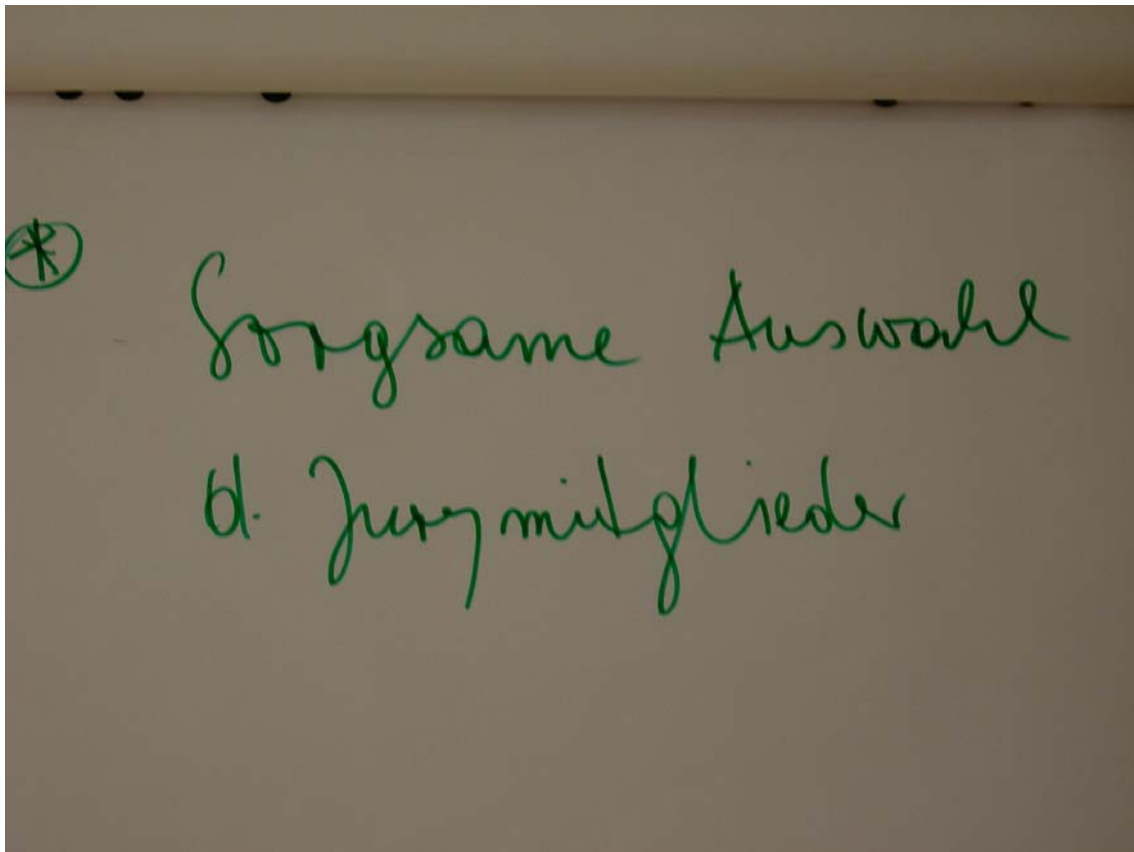 * Sorgsame Auswahl
d. Jurymitglieder